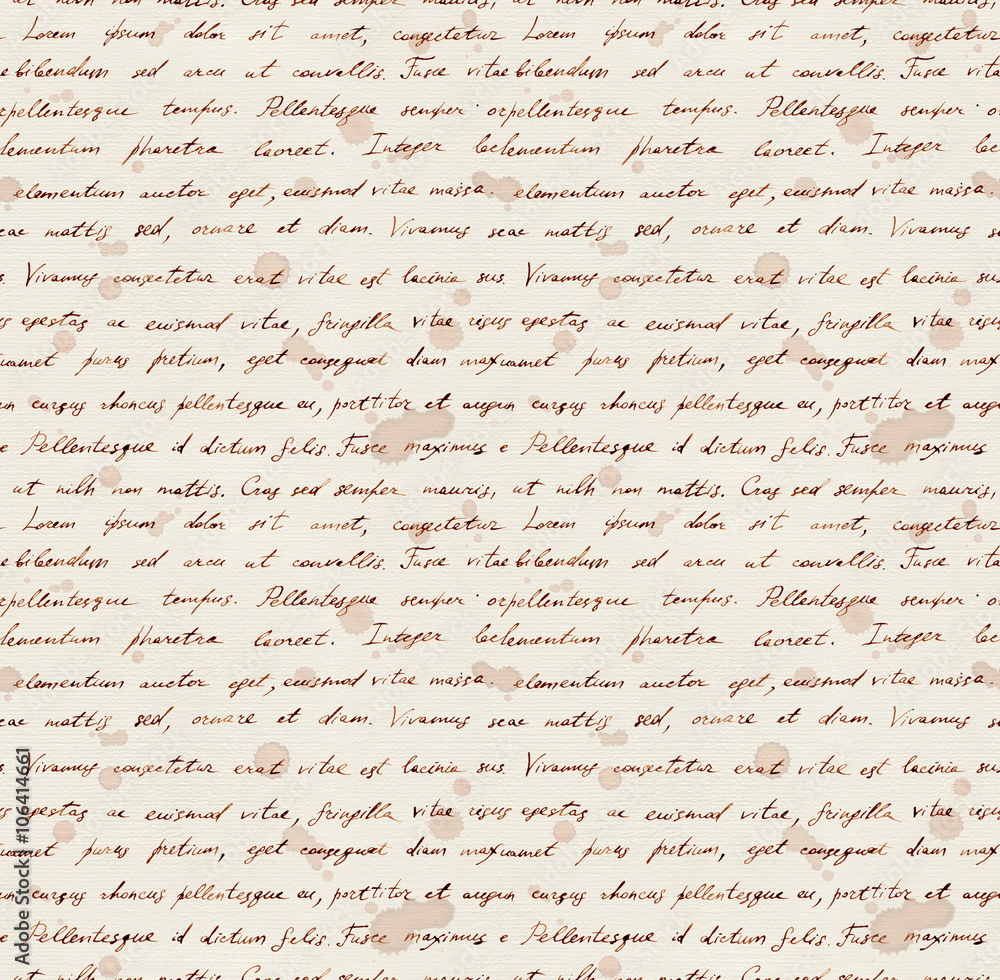 ut nibh non mattis. Cras sed semper mauris, ut nibh non mattis. Cras sed semper mauris,
Lorem ipsum dolor sit amet, consectetur Lorem ipsum dolor sit amet, consectetur
e bibendum sed arcu ut convallis. Fusce vitae bibendum sed arcu ut convallis. Fusce vita
orpellentesque tempus. Pellentesque semper orpellentesque tempus. Pellentesque semper o
lementum pharetra laoreet. Integer laclementum pharetra laoreet. Integer lac
elementum auctor eget, euismod vitae massa. elementum auctor eget, euismod vitae massa.
eac mattis sed, ornare et diam. Vivamus seac mattis sed, ornare et diam. Vivamus s
s. Vivamus consectetur erat vitae est lacinia sus. Vivamus consectetur erat vitae est lacinia sus
us egestas ac euismod vitae, fringilla vitae risus egestas ac euismod vitae, fringilla vitae risus
uamet purus pretium, eget consequat diam maxuamet purus pretium, eget consequat diam max
un cursus rhoncus pellentesque eu, porttitor et augun cursus rhoncus pellentesque eu, porttitor et aug
e Pellentesque id dictum felis. Fusce maximus e Pellentesque id dictum felis. Fusce maximus
ut nibh non mattis. Cras sed semper mauris, ut nibh non mattis. Cras sed semper mauris,
Lorem ipsum dolor sit amet, consectetur Lorem ipsum dolor sit amet, consectetur
e bibendum sed arcu ut convallis. Fusce vitae bibendum sed arcu ut convallis. Fusce vita
orpellentesque tempus. Pellentesque semper orpellentesque tempus. Pellentesque semper o
lementum pharetra laoreet. Integer laclementum pharetra laoreet. Integer lac
elementum auctor eget, euismod vitae massa. elementum auctor eget, euismod vitae massa.
eac mattis sed, ornare et diam. Vivamus seac mattis sed, ornare et diam. Vivamus s
s. Vivamus consectetur erat vitae est lacinia sus. Vivamus consectetur erat vitae est lacinia sus
us egestas ac euismod vitae, fringilla vitae risus egestas ac euismod vitae, fringilla vitae risus
uamet purus pretium, eget consequat diam maxuamet purus pretium, eget consequat diam max
un cursus rhoncus pellentesque eu, porttitor et augun cursus rhoncus pellentesque eu, porttitor et aug
e Pellentesque id dictum felis. Fusce maximus e Pellentesque id dictum felis. Fusce maximus
ut nibh non mattis. Cras sed semper mauris, ut nibh non mattis. Cras sed semper mauris,
Adobe Stock | #106414661